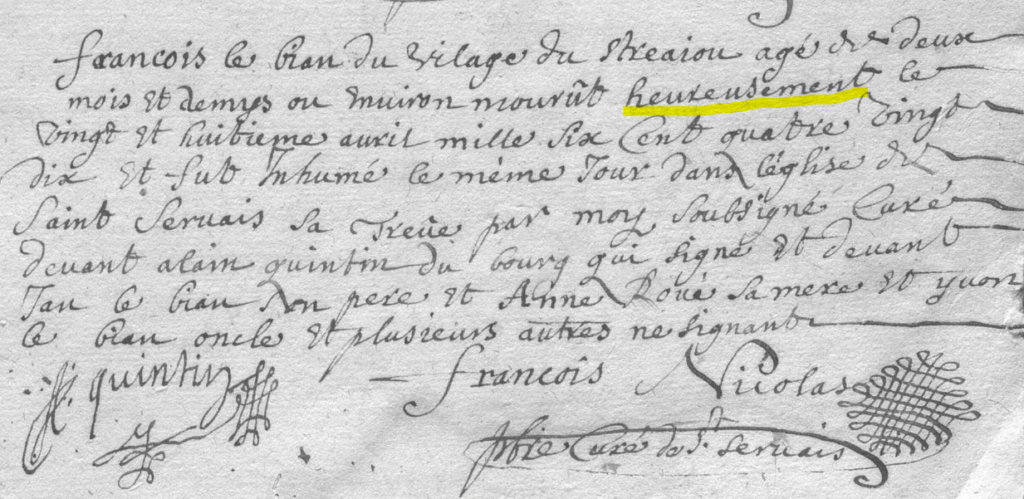 francois le bian du vilage du streaiou agé de deux
mois et demys ou enuiron mourût heureusement le
vingt et huitieme auril mille six cent quatre vingt
dix et fut Inhumé le même Jour dans l'église de
Saint Servais sa Treûe par moy soubsigné Curé
devant alain quintin du bourg qui signe et devant
Jan le bian son pere et Anne Roué sa mere et yvon
le bian oncle et plusieurs autres ne signant
quintin francoîs Nicolas
pbre Curé de St servais